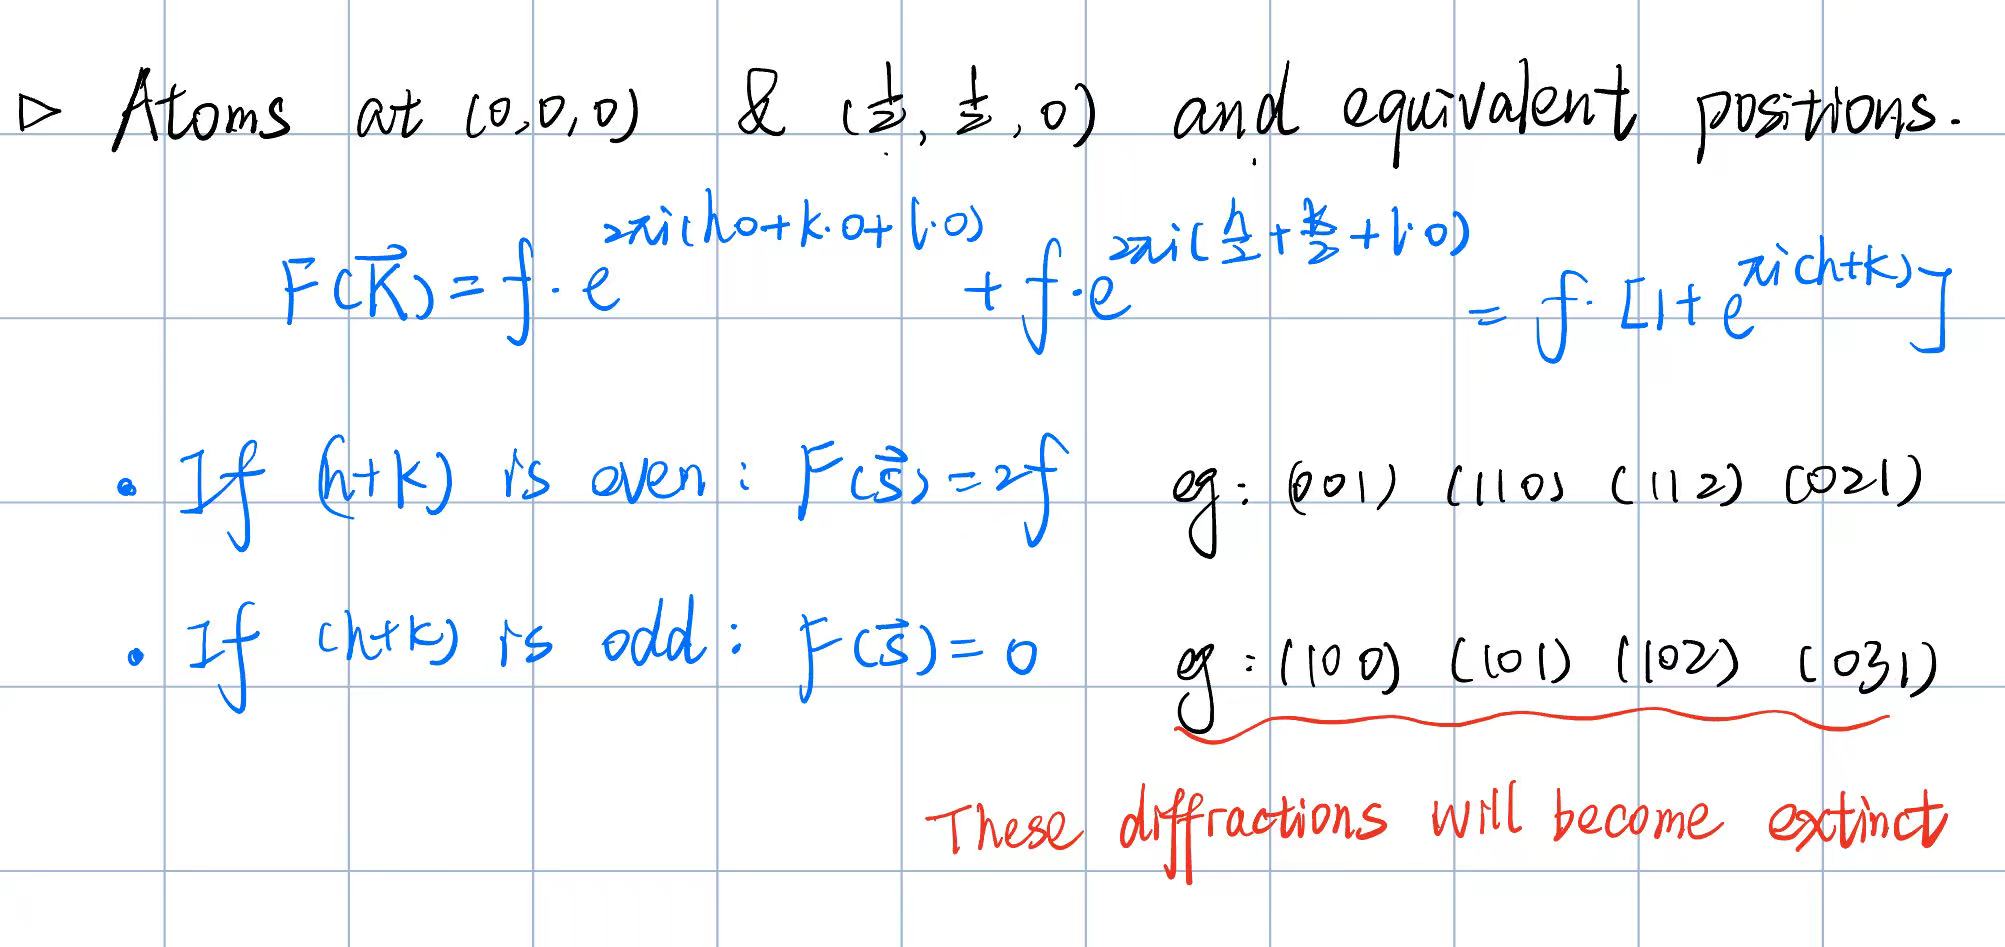 ▷ Atoms at (0,0,0) & (½, ½, 0) and equivalent positions.
F(K⃗) = f · e^{2πi(h0+k·0+l·0)} + f·e^{2πi(h/2+k/2+l·0)} = f· [1+e^{πi(h+k)}]
• If (h+k) is even: F(s⃗) = 2f eg: (001) (110) (112) (021)
• If (h+k) is odd: F(s⃗) = 0 eg: (100) (101) (102) (031)
These diffractions will become extinct